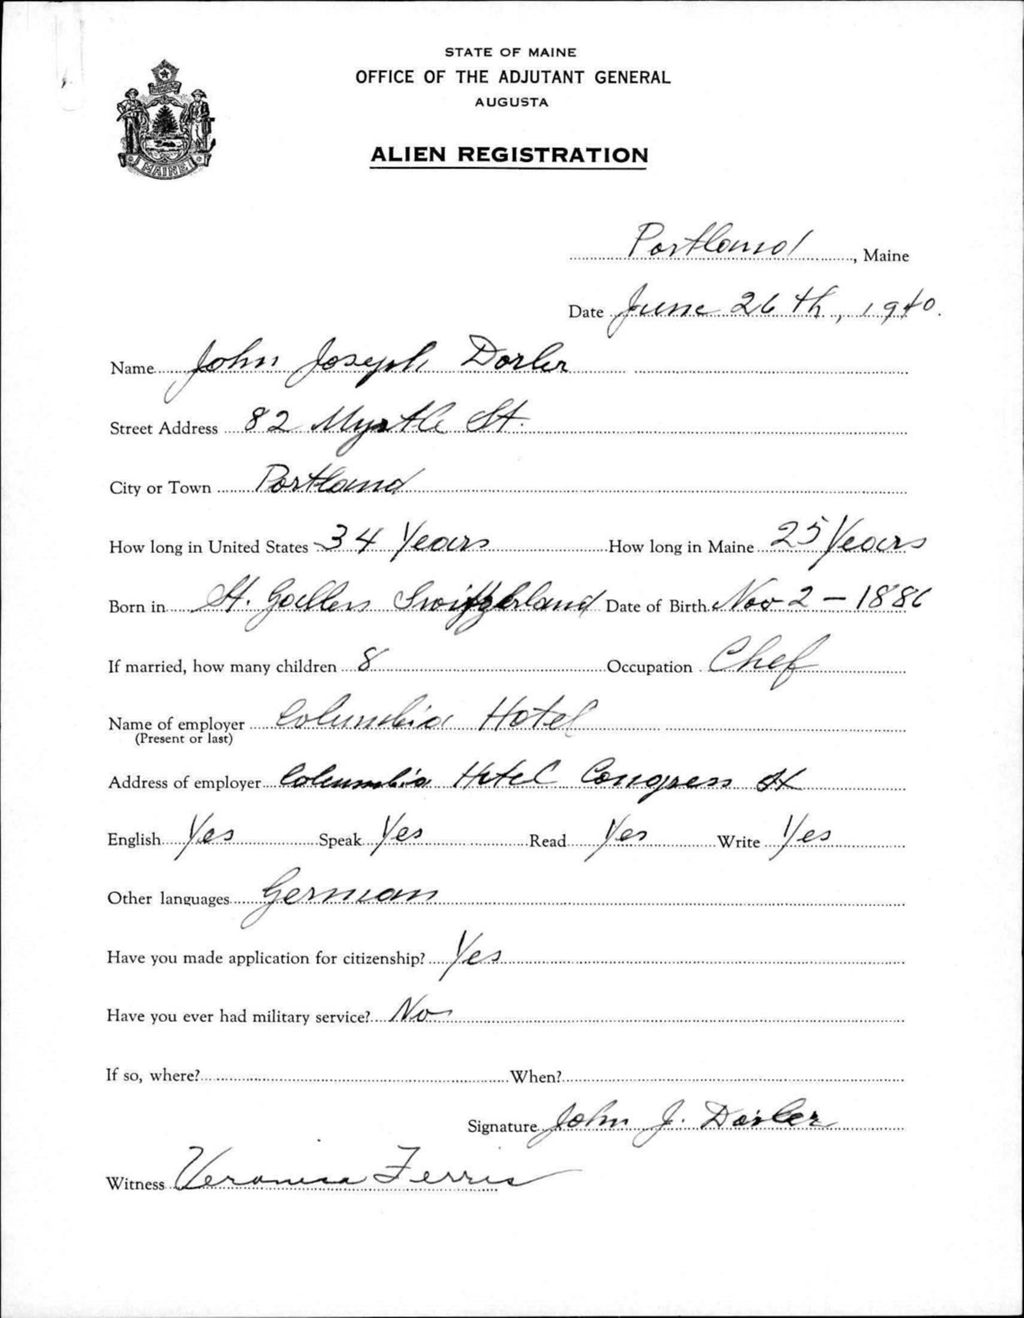 STATE OF MAINE
OFFICE OF THE ADJUTANT GENERAL
AUGUSTA
ALIEN REGISTRATION
MAINE
Portland, Maine
Date June 26th, 1940.
Name John Joseph Dorler
Street Address 82 Myrtle St.
City or Town Portland
How long in United States 34 Years How long in Maine 25 Years
Born in St. Gallens Switzerland Date of Birth Nov 2 - 1886
If married, how many children 8 Occupation Chef
Name of employer Columbia Hotel
(Present or last)
Address of employer Columbia Hotel Congress St
English Yes Speak Yes Read Yes Write Yes
Other languages German
Have you made application for citizenship? Yes
Have you ever had military service? No
If so, where? When?
Signature John J. Dorler
Witness Veronica Ferris